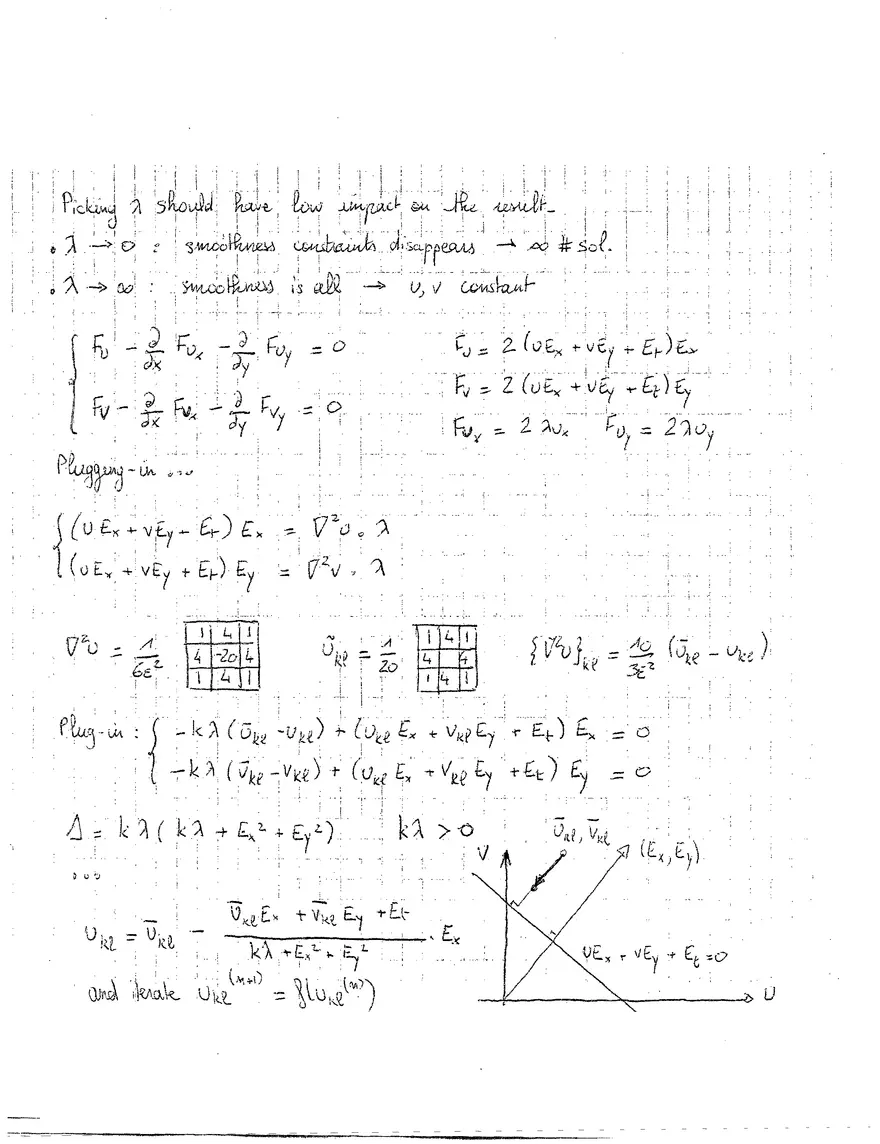 Picking λ should have low impact on the result.
• λ → 0 : smoothness constraints disappears → ∞ # sol.
• λ → ∞ : smoothness is all → u, v constant
{ Fu - ∂/∂x Fux - ∂/∂y Fuy = 0
Fv - ∂/∂x Fvx - ∂/∂y Fvy = 0
Fu = 2 (uEx + vEy + Et) Ex
Fv = 2 (uEx + vEy + Et) Ey
Fux = 2 λux Fuy = 2λuy
Plugging-in ...
{ (uEx + vEy + Et) Ex = ∇²u . λ
(uEx + vEy + Et) Ey = ∇²v . λ
∇²u = 1/6ε²
1 4 1
4 -20 4
1 4 1
ūkl = 1/20
1 4 1
4 4
1 4 1
{∇²u}kl = 10/3ε² (ūkl - ukl)
Plug-in : { -kλ (ūkl - ukl) + (ukl Ex + vkl Ey + Et) Ex = 0
-kλ (v̄kl - vkl) + (ukl Ex + vkl Ey + Et) Ey = 0
Δ = kλ ( kλ + Ex² + Ey²) kλ > 0
...
ukl = ūkl - (ūkl Ex + v̄kl Ey + Et)/(kλ + Ex² + Ey²) . Ex
and iterate ukl^(n+1) = f(ukl^(n))
V
ūkl, v̄kl
(Ex, Ey)
uEx + vEy + Et = 0
U